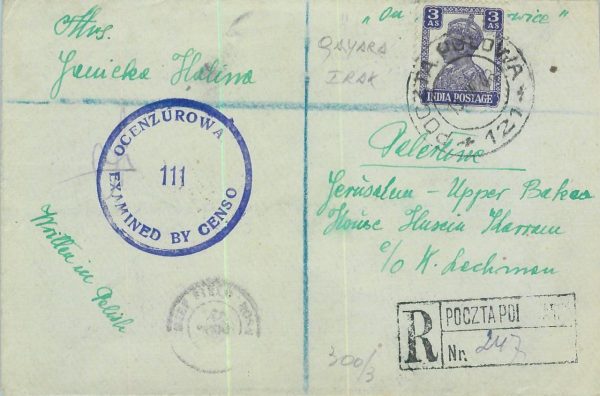 Mrs.
Janicka Halina
"On
QAYARA
IRAK
3 AS
3 AS
INDIA POSTAGE
POCZTA POLOWA
* 121 *
OCENZUROWA
111
EXAMINED BY CENSO
Written in Polish
Palestine
Jerusalem - Upper Bakaa
House Husein Karram
c/o K. Lachman
FIELD POST
300/3
R
POCZTA POL
Nr. 247